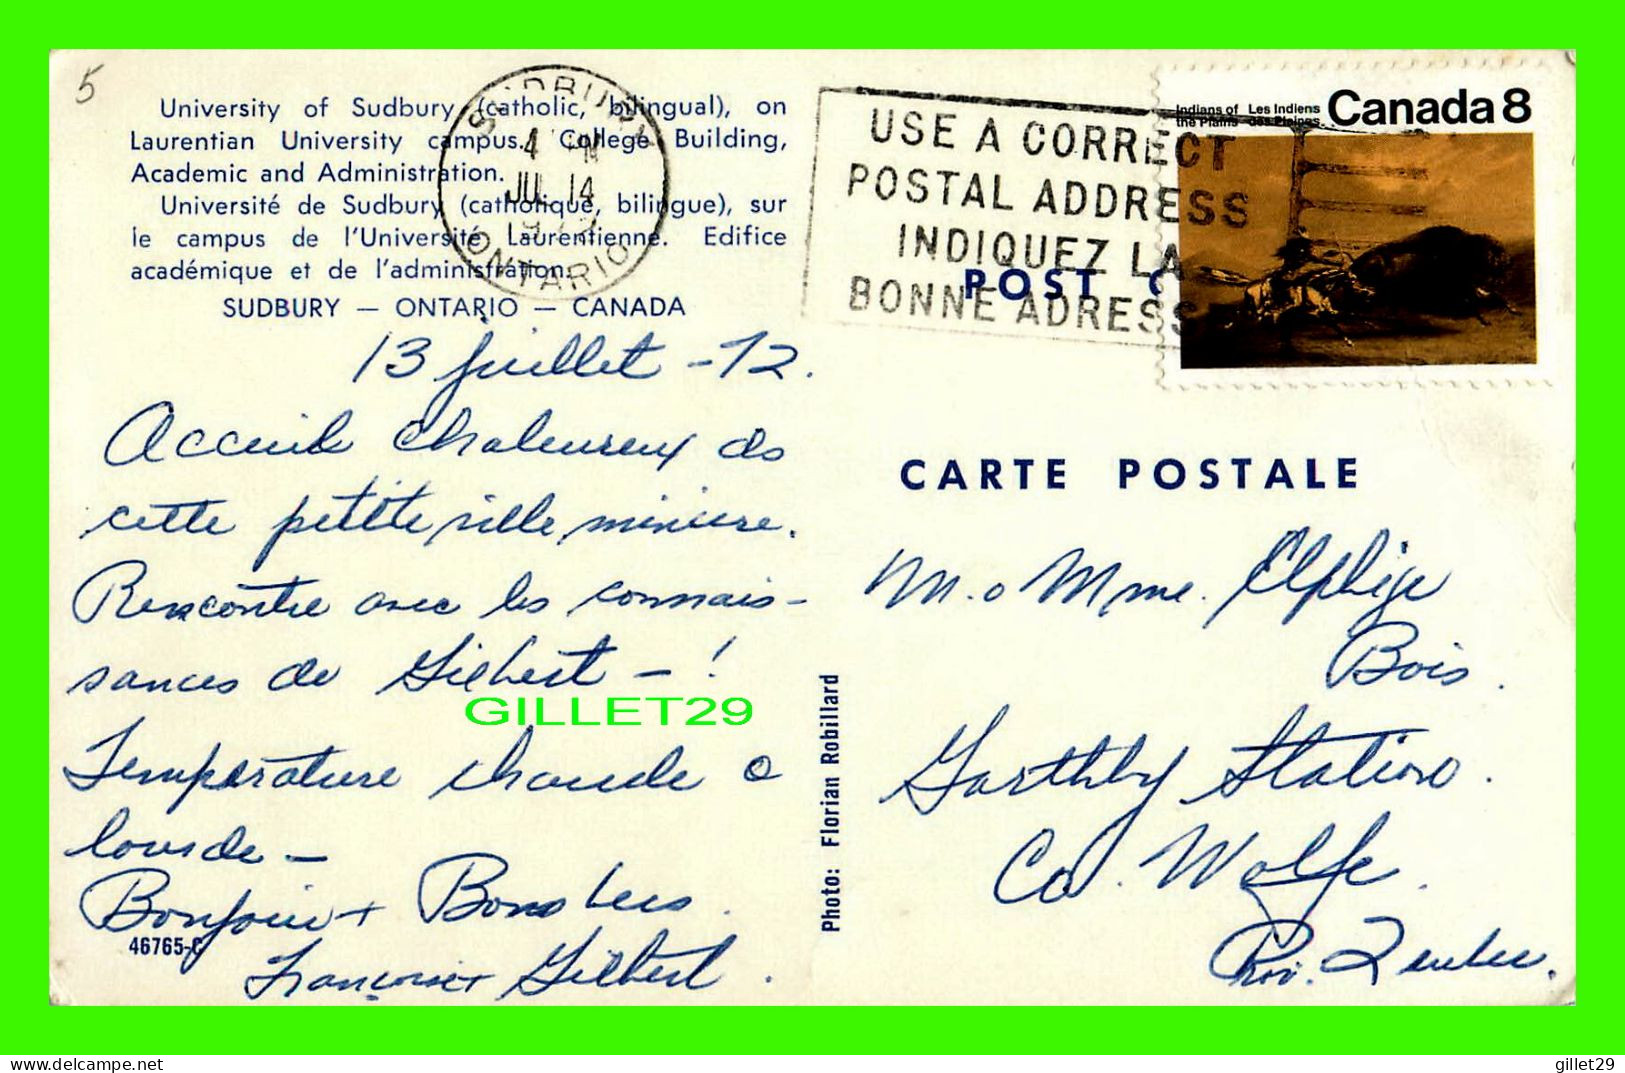 5
University of Sudbury (catholic, bilingual), on
Laurentian University campus. College Building,
Academic and Administration.
Université de Sudbury (catholique, bilingue), sur
le campus de l'Université Laurentienne. Edifice
académique et de l'administration.
SUDBURY — ONTARIO — CANADA
SUDBURY
JUL 14
ONTARIO
USE A CORRECT
POSTAL ADDRESS
INDIQUEZ LA
BONNE ADRESS
Indians of the Plains
Les Indiens des Plaines
Canada 8
POST C
CARTE POSTALE
13 juillet -72.
Accueil chaleureux ds
cette petite ville minière.
Rencontre avec les connais-
sances de Gilbert - !
GILLET29
Température chaude &
lourde -
Bonjour + Bons becs.
46765-C
Françoise + Gilbert.
Photo: Florian Robillard
M. & Mme. Elphège
Bois.
Garthby Station.
Co. Wolfe.
Prov. Quebec.
gillet29